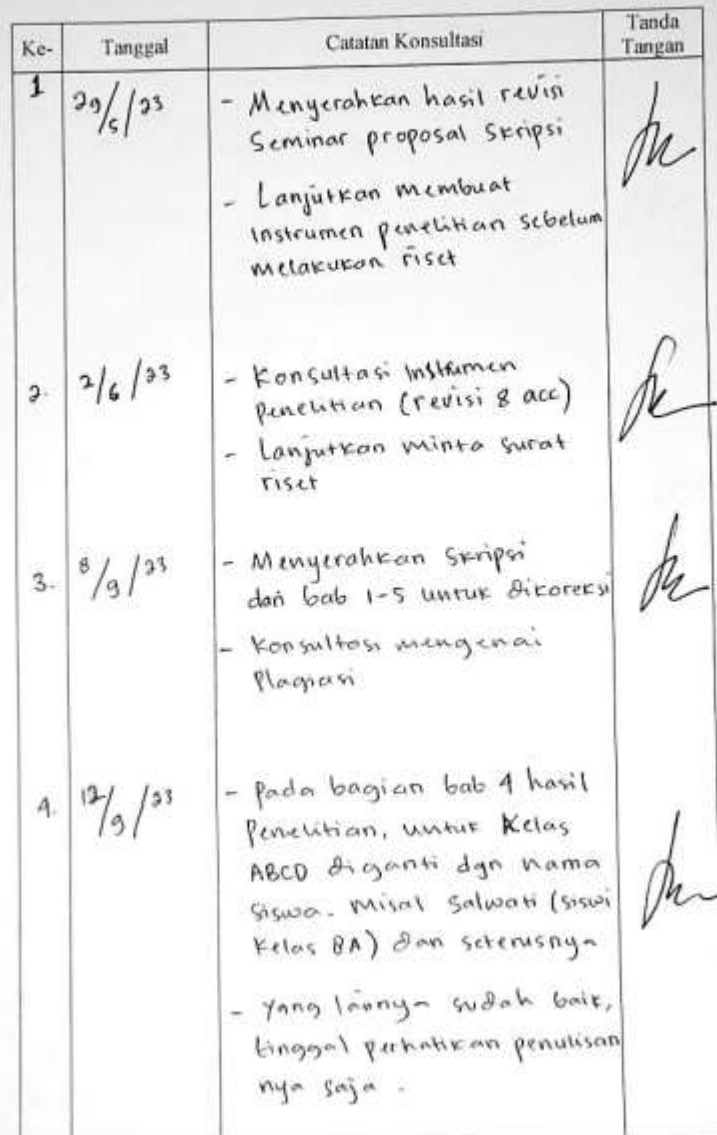 Ke- Tanggal Catatan Konsultasi Tanda Tangan
1 29/5/23 - Menyerahkan hasil revisi
Seminar proposal Skripsi
- Lanjutkan membuat
instrumen penelitian sebelum
melakukan riset
2. 2/6/23 - Konsultasi instrumen
Penelitian (revisi & acc)
- Lanjutkan minta surat
riset
3. 8/9/23 - Menyerahkan Skripsi
dari bab 1-5 untuk dikoreksi
- Konsultasi mengenai
Plagiasi
4. 12/9/23 - Pada bagian bab 4 hasil
Penelitian, untuk Kelas
ABCD diganti dgn nama
siswa. Misal Salwati (siswi
Kelas 8A) dan seterusnya
- Yang lainnya sudah baik,
tinggal perhatikan penulisan
nya saja.